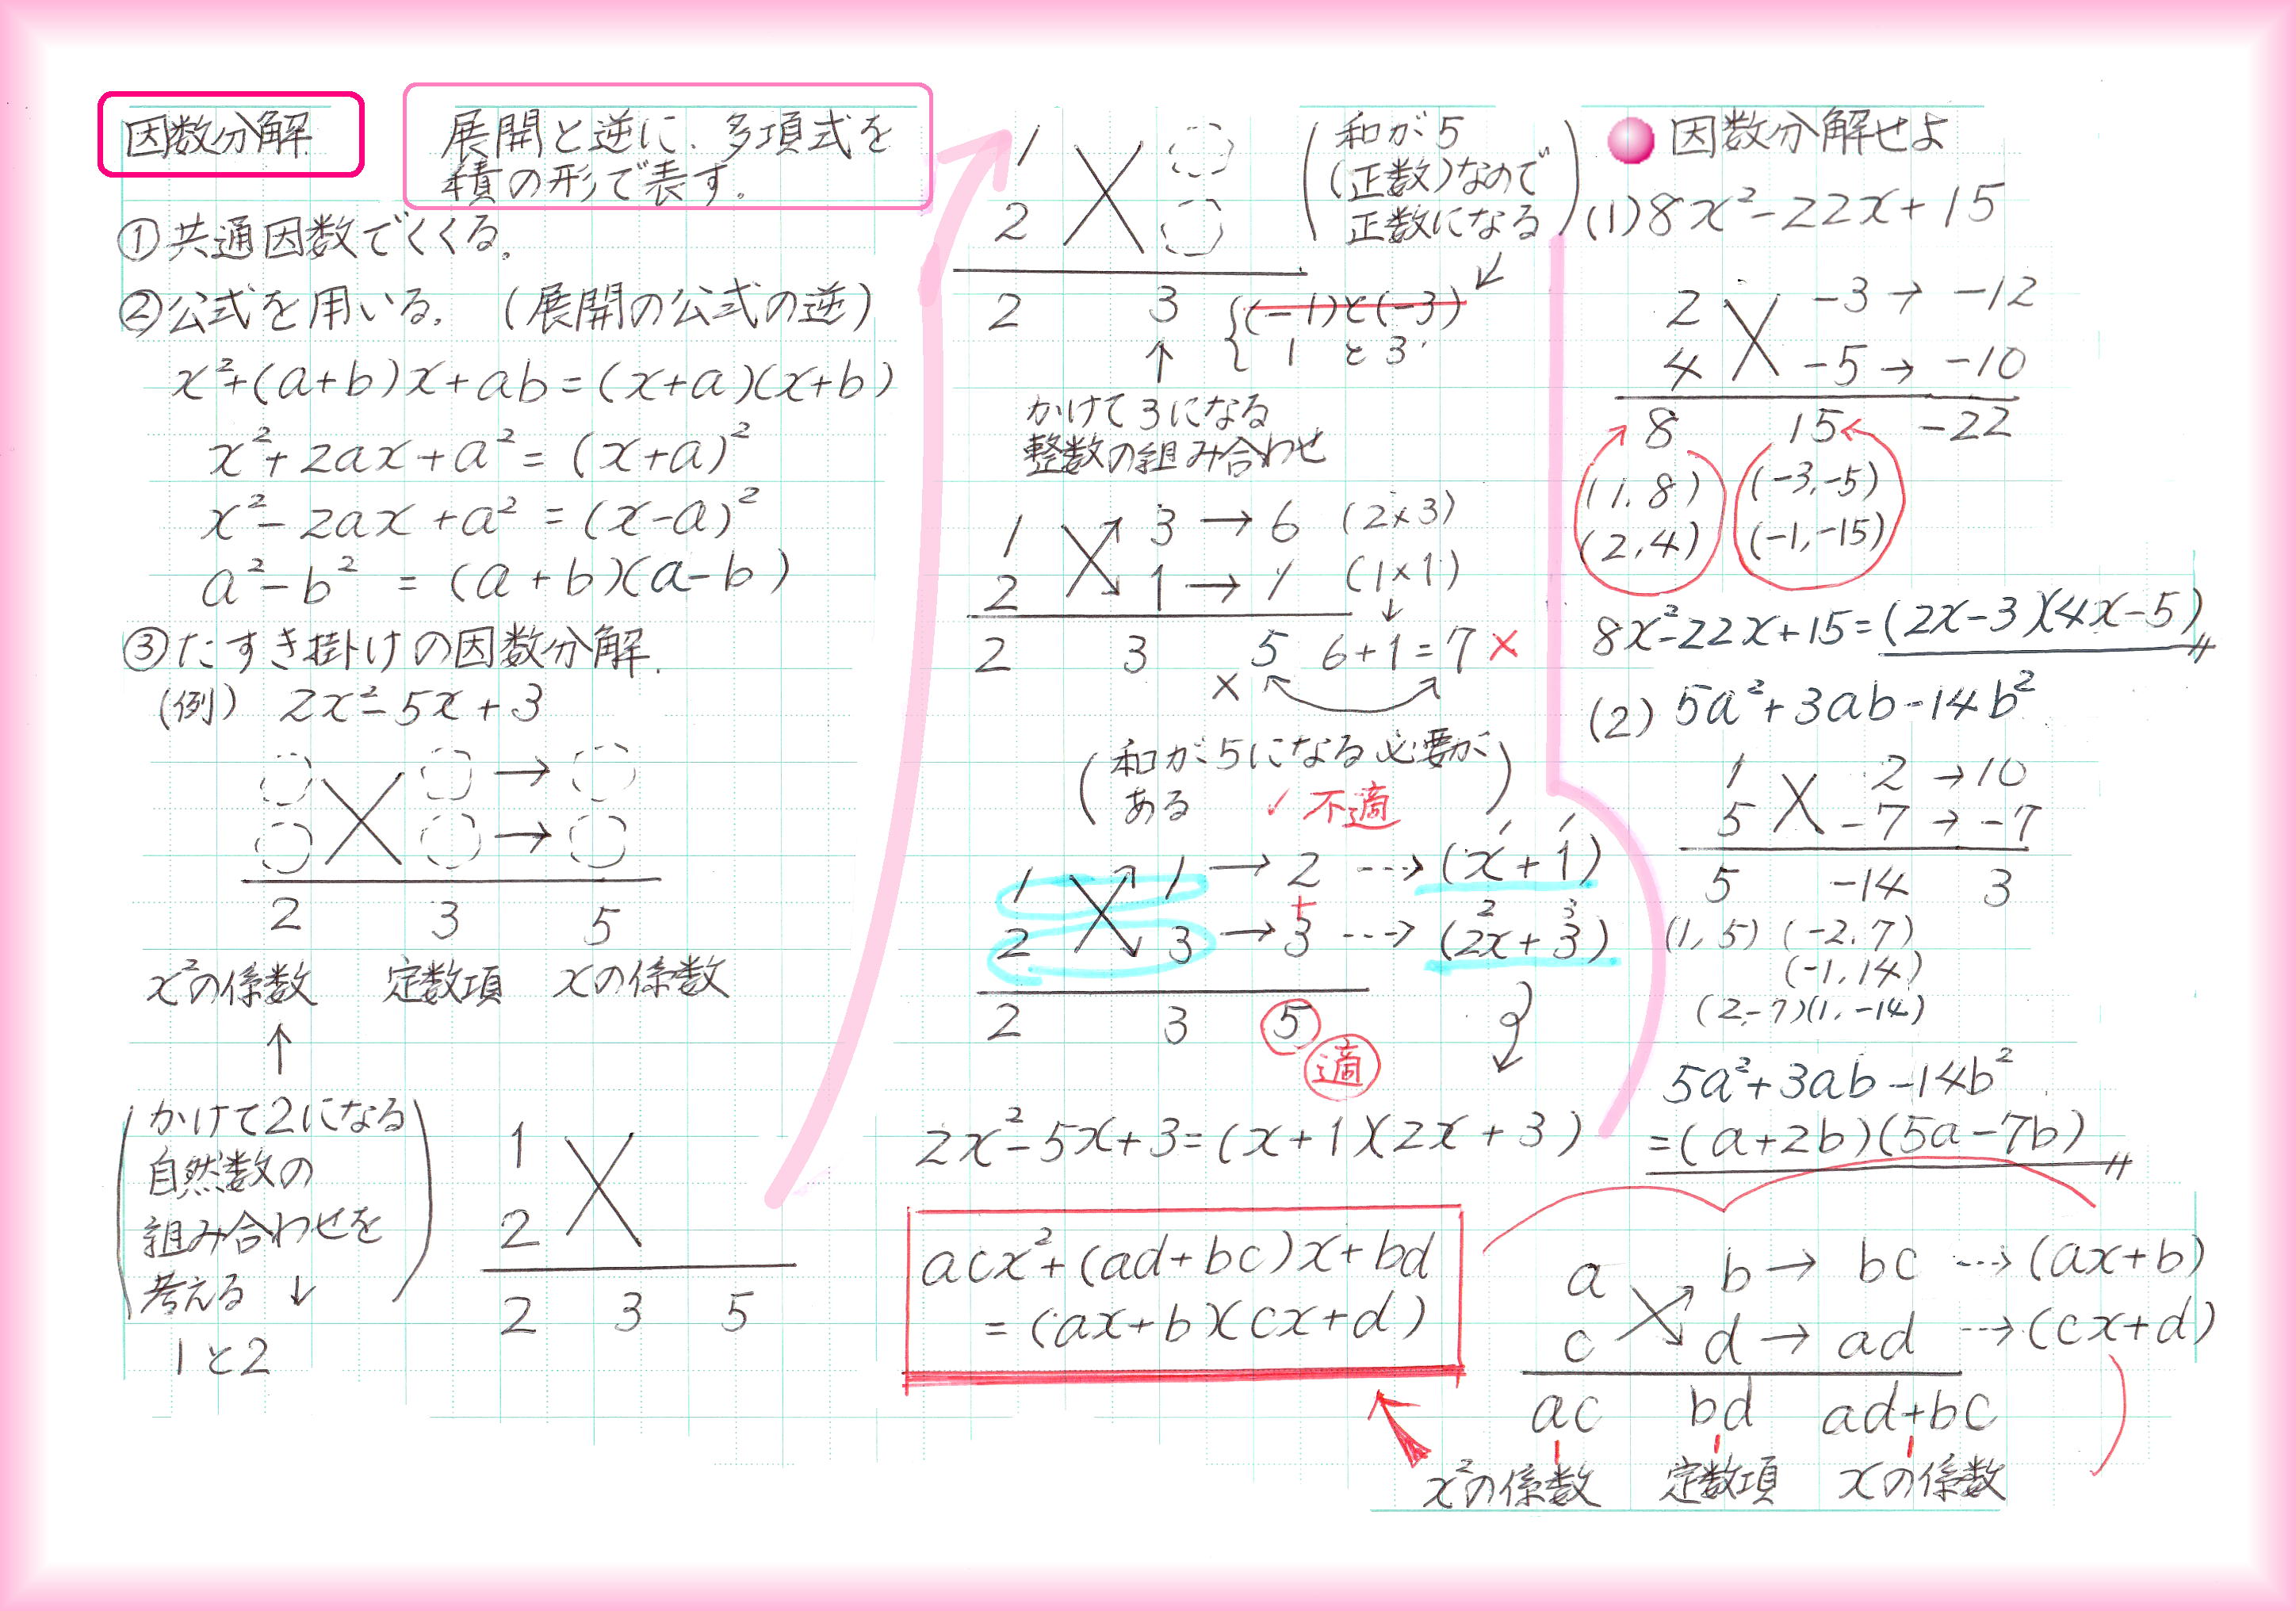 因数分解
展開と逆に、多項式を
積の形で表す。
①共通因数でくくる。
②公式を用いる。(展開の公式の逆)
x²+(a+b)x+ab=(x+a)(x+b)
x²+2ax+a²=(x+a)²
x²-2ax+a²=(x-a)²
a²-b²=(a+b)(a-b)
③たすき掛けの因数分解.
(例) 2x²-5x+3
→
→
2 3 5
x²の係数 定数項 xの係数
↑
(かけて2になる
自然数の
組み合わせを
考える ↓)
1と2
1
2
2 3 5
1
2
2 3
(和が5
(正数)なので
正数になる)
↙
{(-1)と(-3)
1 と 3
↑
かけて3になる
整数の組み合わせ
1 3 → 6 (2×3)
2 1 → 1 (1×1)
↓
2 3 5 6+1=7 ×
×
(和が5になる必要が
ある)
✓ 不適
1 1 → 2 ⇢ (x+1)
+
2 3 → 3 ⇢ (2x+3)
2 3 ⑤
適
2x²-5x+3=(x+1)(2x+3)
acx²+(ad+bc)x+bd
=(ax+b)(cx+d)
因数分解せよ
(1)8x²-22x+15
2 -3 → -12
4 -5 → -10
8 15 -22
(1,8) (-3,-5)
(2,4) (-1,-15)
8x²-22x+15=(2x-3)(4x-5)
(2) 5a²+3ab-14b²
1 2 → 10
5 -7 → -7
5 -14 3
(1,5) (-2,7)
(-1,14)
(2,-7)(1,-14)
5a²+3ab-14b²
=(a+2b)(5a-7b)
a b → bc ⇢ (ax+b)
c d → ad ⇢ (cx+d)
ac bd ad+bc
x²の係数 定数項 xの係数